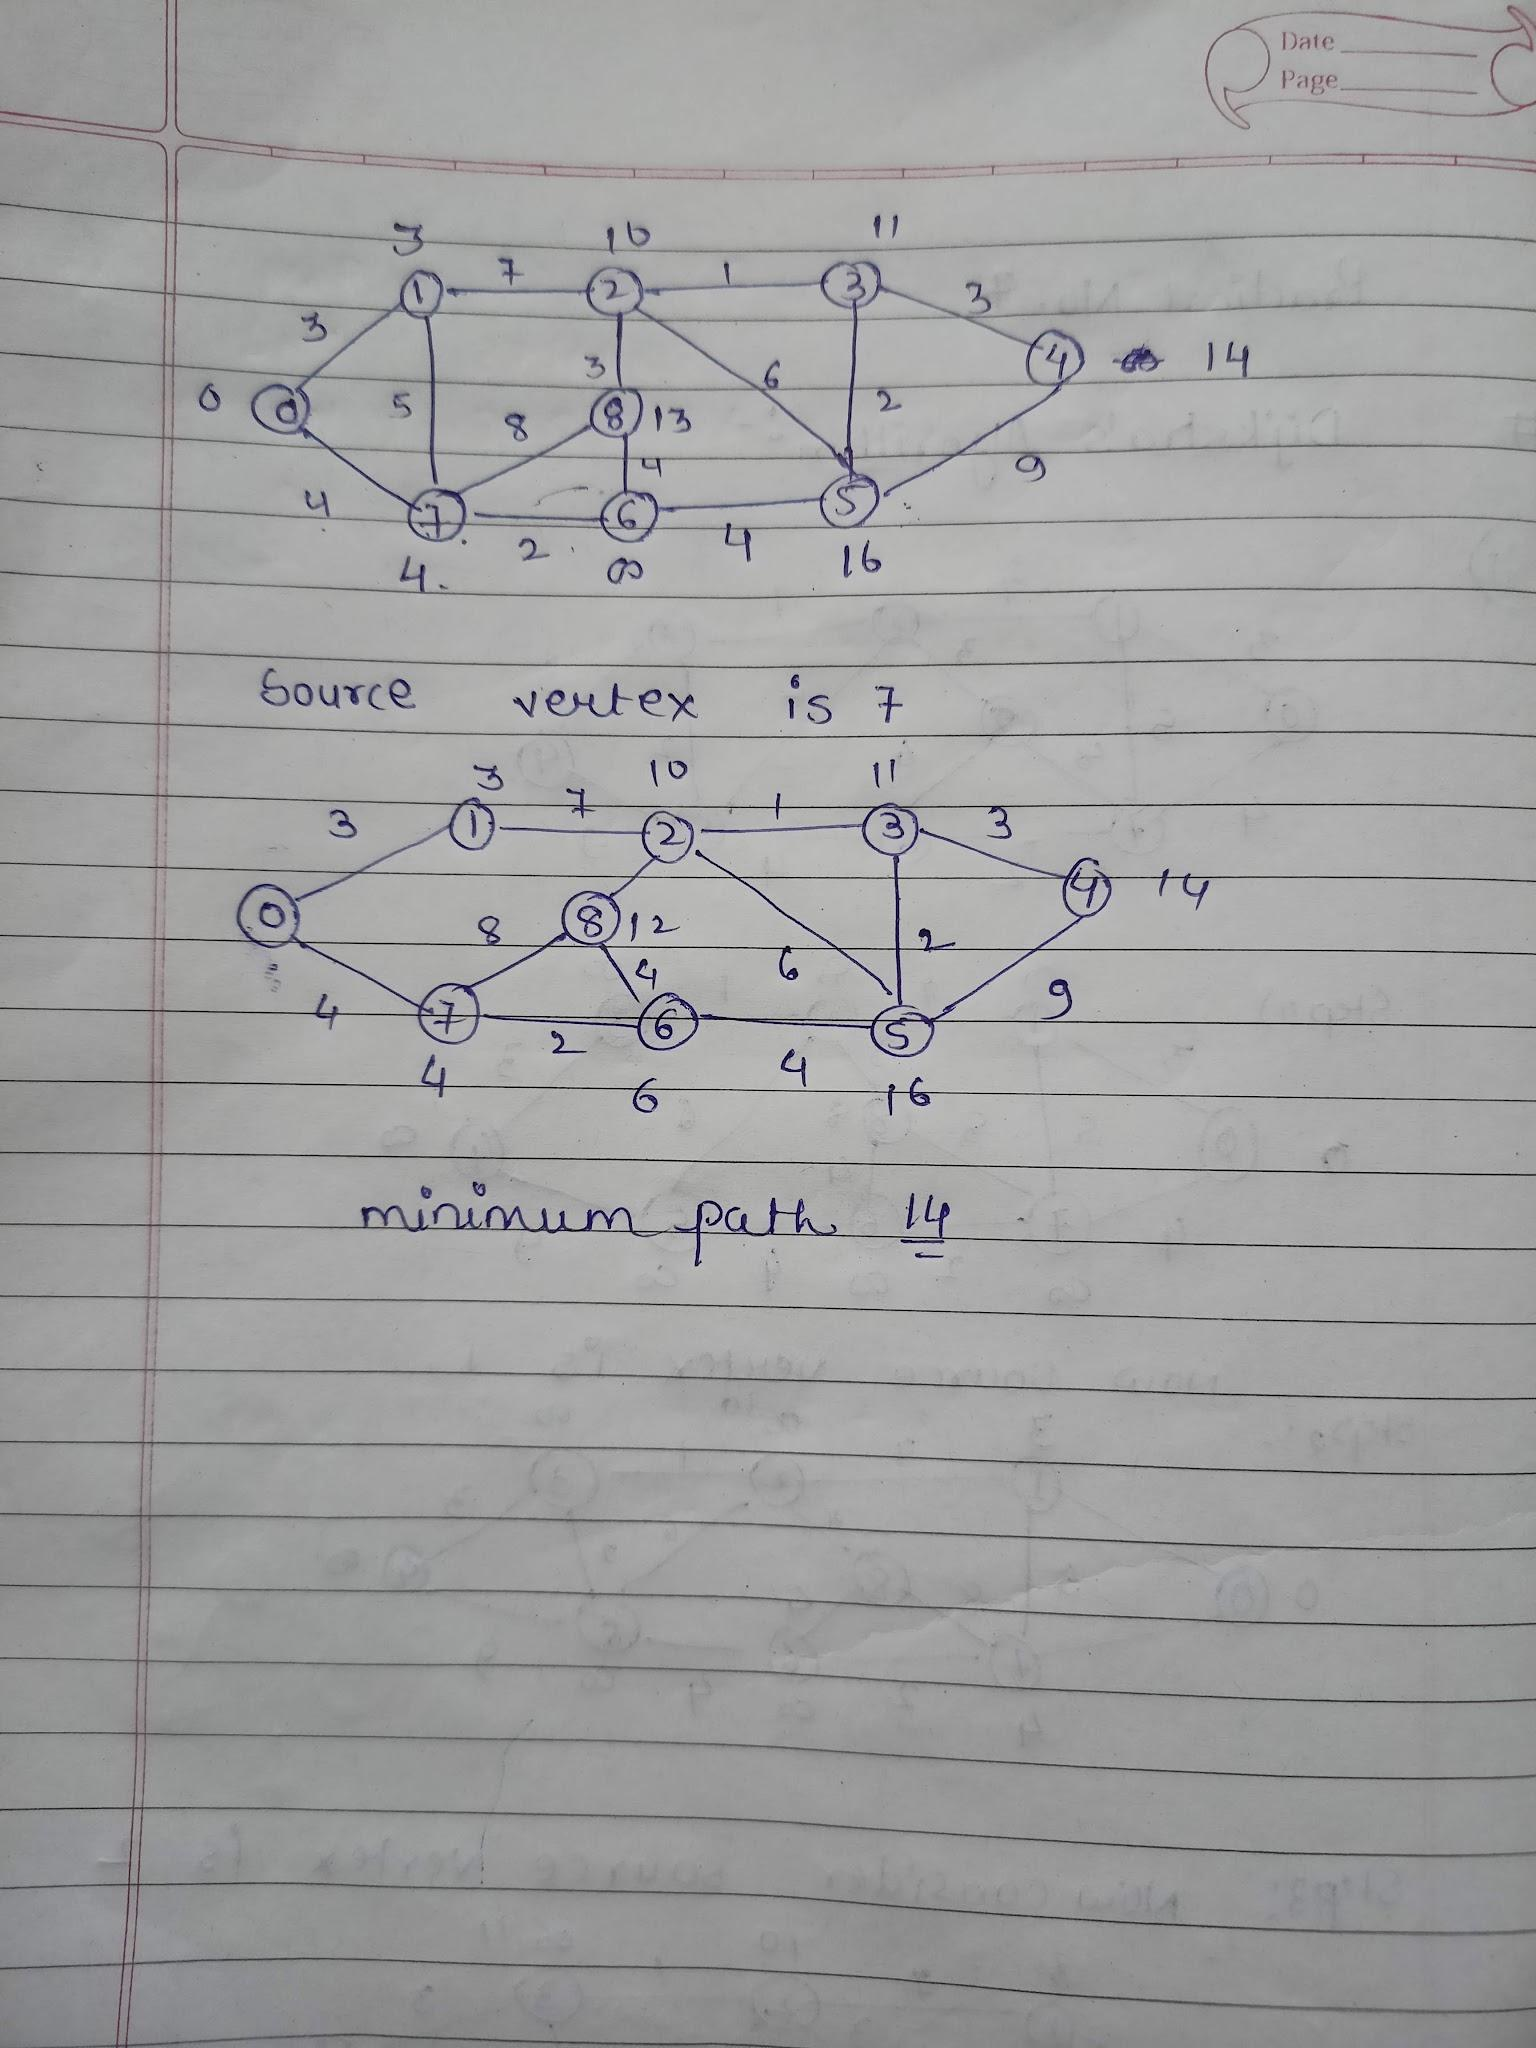 Date
Page
3 10 11
7 1
3 3
1 2 3
4 14
0 0 5 3 6 2
8 8 13
4 9
4 7 6 5
2 4
4 ∞ 16
Source vertex is 7
3 10 11
3 7 1 3
1 2 3
4 14
0 8 8 12 2
4 6 9
4 7 6 5
2 4
4 6 16
minimum path 14